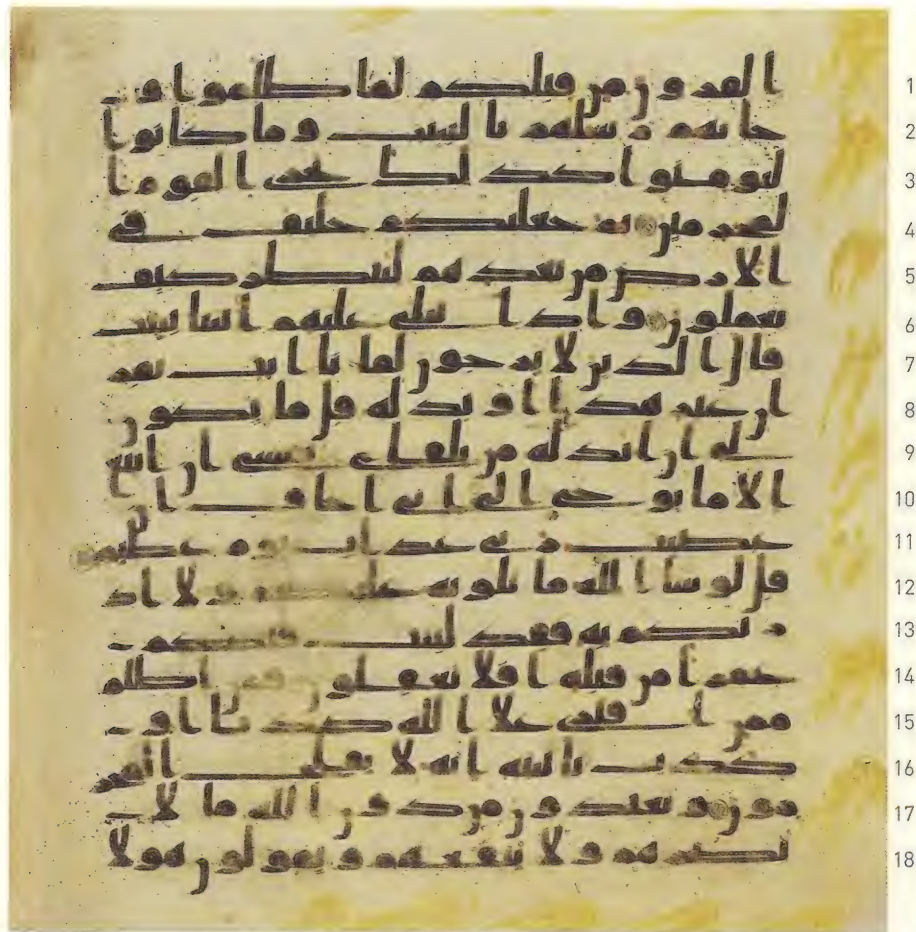 القرون من قبلكم لما ظلموا و 1
جاتهم رسلهم بالبينت وما كانوا 2
ليومنوا كذلك نجزي القوم ا 3
لمجرمين ثم جعلنكم خليف في 4
الارض من بعدهم لننظر كيف 5
تعملون واذا تتلى عليهم ايتنا بينت 6
قال الذين لا يرجون لقانا ايت بقر 7
ان غير هذا او بدله قل ما يكون 8
لي ان ابدله من تلقاي نفسي ان اتبع 9
الا ما يوحى الي اني اخاف ان 10
عصيت ربي عذاب يوم عظيم 11
قل لو شا الله ما تلوته عليكم ولا اد 12
ريكم به فقد لبثت فيكم 13
عمرا من قبله افلا تعقلون فمن اظلم 14
ممن افترى علا الله كذبا او 15
كذب بايته انه لا يفلح المجر 16
مون ويعبدون من دون الله ما لا 17
يضرهم ولا ينفعهم ويقولون هولا 18